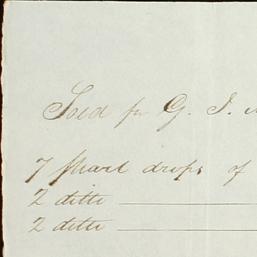 Sold for G. I.
7 Pearl drops of
2 ditto
2 ditto